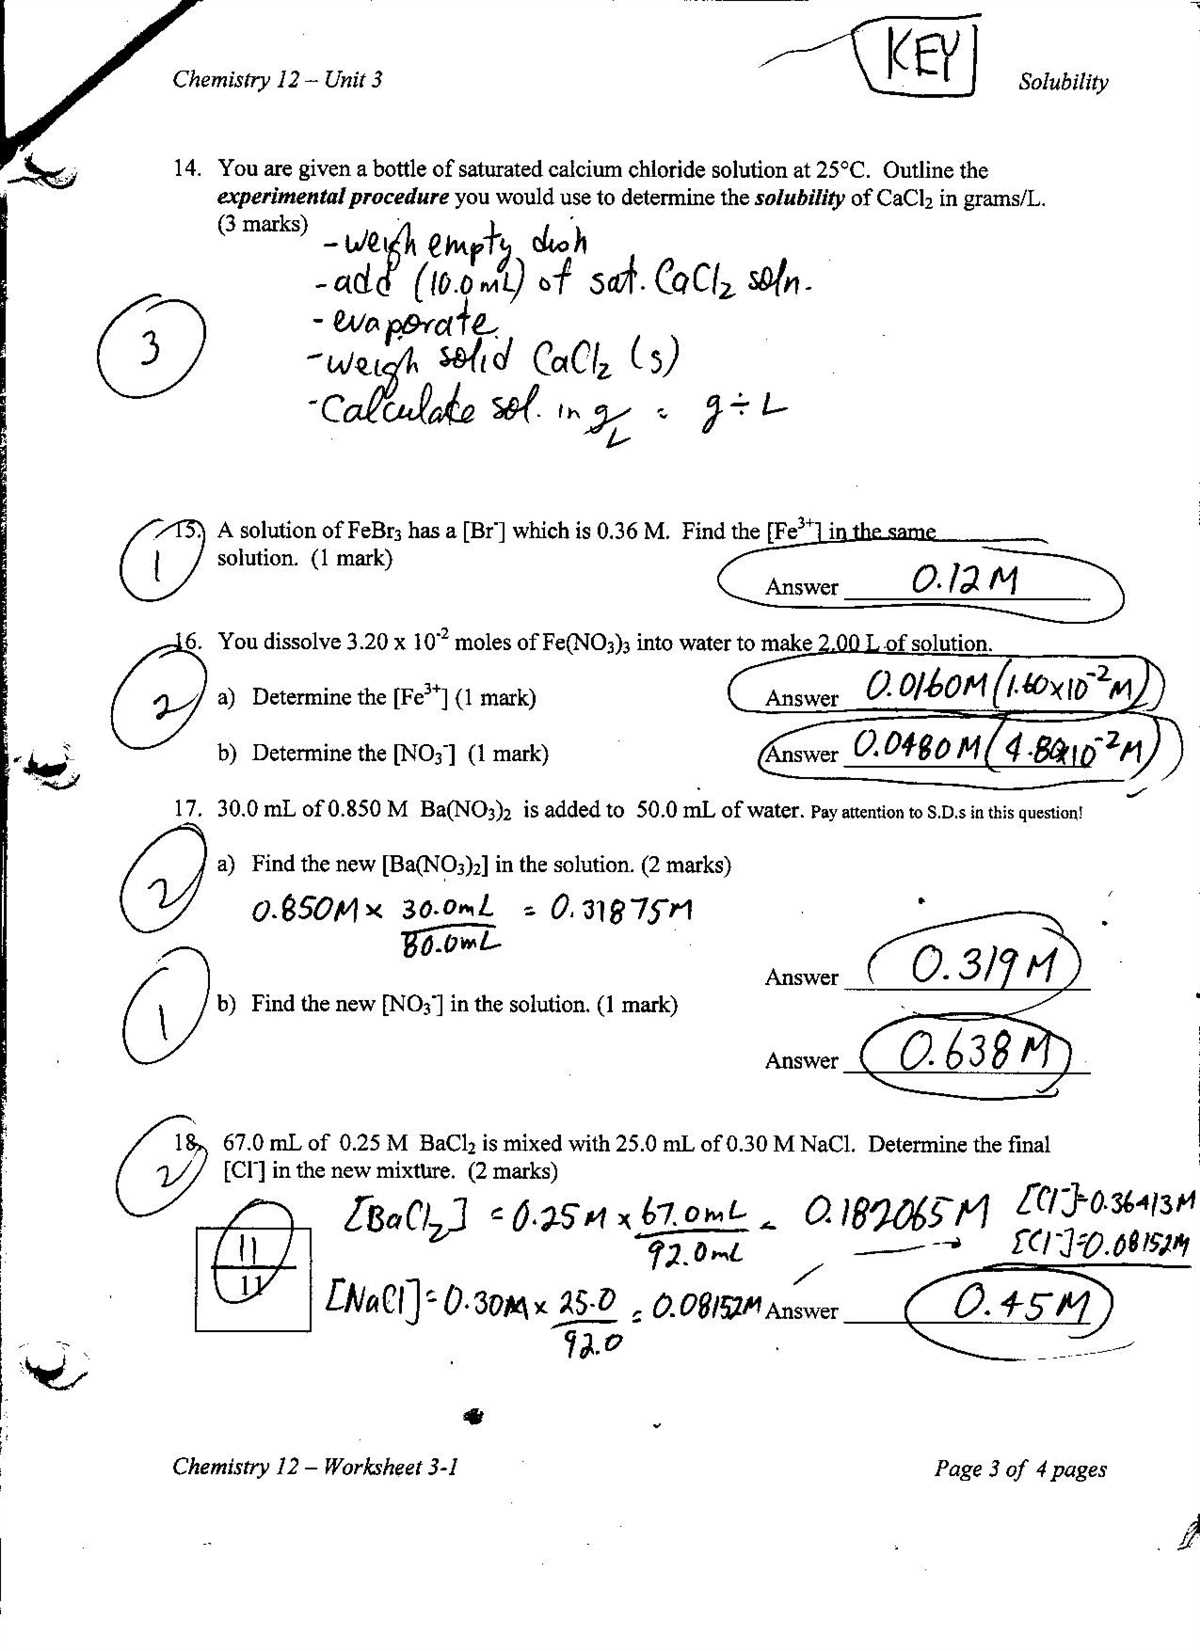 KEY
Chemistry 12 – Unit 3 Solubility
14. You are given a bottle of saturated calcium chloride solution at 25°C. Outline the
experimental procedure you would use to determine the solubility of CaCl₂ in grams/L.
(3 marks)
- weigh empty dish
- add (10.0mL) of sat. CaCl₂ soln.
- evaporate
- weigh solid CaCl₂ (s)
- Calculate sol. in g/L = g ÷ L
3
15. A solution of FeBr₃ has a [Br⁻] which is 0.36 M. Find the [Fe³⁺] in the same
solution. (1 mark)
1
Answer 0.12M
16. You dissolve 3.20 x 10⁻² moles of Fe(NO₃)₃ into water to make 2.00 L of solution.
2
a) Determine the [Fe³⁺] (1 mark) Answer 0.0160M (1.60x10⁻²M)
b) Determine the [NO₃⁻] (1 mark) Answer 0.0480M (4.80x10⁻²M)
17. 30.0 mL of 0.850 M Ba(NO₃)₂ is added to 50.0 mL of water. Pay attention to S.D.s in this question!
2
a) Find the new [Ba(NO₃)₂] in the solution. (2 marks)
0.850M x 30.0mL = 0.31875M
80.0mL
Answer 0.319M
1
b) Find the new [NO₃⁻] in the solution. (1 mark)
Answer 0.638M
18. 67.0 mL of 0.25 M BaCl₂ is mixed with 25.0 mL of 0.30 M NaCl. Determine the final
2
[Cl⁻] in the new mixture. (2 marks)
[BaCl₂] = 0.25M x 67.0mL = 0.182065M [Cl⁻]=0.36413M
92.0mL [Cl⁻]=0.08152M
11
11
[NaCl]=0.30M x 25.0 = 0.08152M Answer 0.45M
92.0
Chemistry 12 – Worksheet 3-1 Page 3 of 4 pages